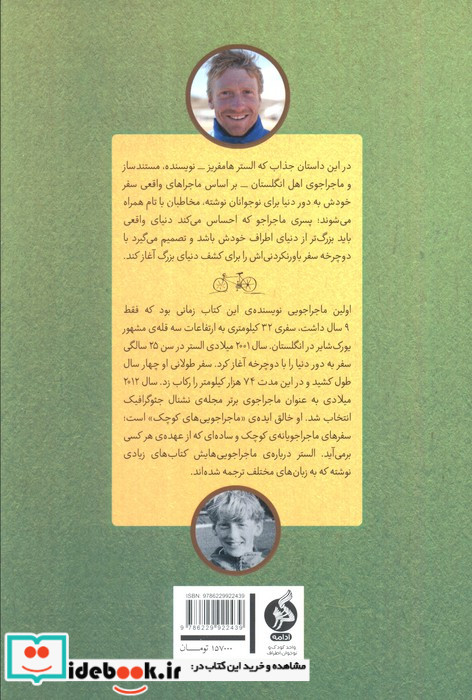 در این داستان جذاب که الستر هامفریز ــ نویسنده، مستندساز
و ماجراجوی اهل انگلستان ــ بر اساس ماجراهای واقعی سفر
خودش به دور دنیا برای نوجوانان نوشته، مخاطبان با تام همراه
می‌شوند؛ پسری ماجراجو که احساس می‌کند دنیای واقعی
باید بزرگ‌تر از دنیای اطراف خودش باشد و تصمیم می‌گیرد با
دوچرخه سفر باورنکردنی‌اش را برای کشف دنیای بزرگ آغاز کند.
اولین ماجراجویی نویسنده‌ی این کتاب زمانی بود که فقط
۹ سال داشت، سفری ۳۲ کیلومتری به ارتفاعات سه قله‌ی مشهور
یورک‌شایر در انگلستان. سال ۲۰۰۱ میلادی الستر در سن ۲۵ سالگی
سفر به دور دنیا را با دوچرخه آغاز کرد. سفر طولانی او چهار سال
طول کشید و در این مدت ۷۴ هزار کیلومتر را رکاب زد. سال ۲۰۱۲
میلادی به عنوان ماجراجوی برتر مجله‌ی نشنال جئوگرافیک
انتخاب شد. او خالق ایده‌ی «ماجراجویی‌های کوچک» است؛
سفرهای ماجراجویانه‌ی کوچک و ساده‌ای که از عهده‌ی هر کسی
برمی‌آید. الستر درباره‌ی ماجراجویی‌هایش کتاب‌های زیادی
نوشته که به زبان‌های مختلف ترجمه شده‌اند.
ISBN: 9786229922439
9 786229 922439
۱۵۷۰۰۰ تومان
ادامه
واحد کودک و
نوجوان اطراف
مشاهده و خرید این کتاب در:
idebook.ir